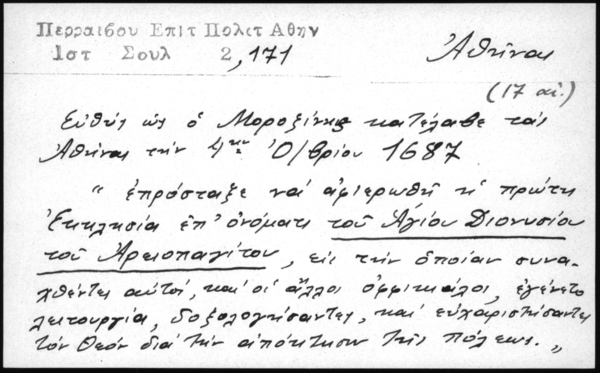 Περραιβου Επιτ Πολιτ Αθην
Ιστ Σουλ 2,171
Ἀθῆναι
(17 αἰ.)
Εὐθύς ὡς ὁ Μοροζίνης κατέλαβε τάς
Ἀθήνας τήν 4ην Ὀ/βρίου 1687
" ἐπρόσταξε νά ἀφιερωθῇ ἡ πρώτη
Ἐκκλησία ἐπ' ὀνόματι τοῦ Ἁγίου Διονυσίου
τοῦ Ἀρειοπαγίτου, εἰς τήν ὁποίαν συνα-
χθέντες αὐτοί, καί οἱ ἄλλοι ὀφφικιάλοι, ἐγένετο
λειτουργία, δοξολογήσαντες, καί εὐχαριστήσαντες
τόν Θεόν διά τήν ἀπόκτησιν τῆς πόλεως. "